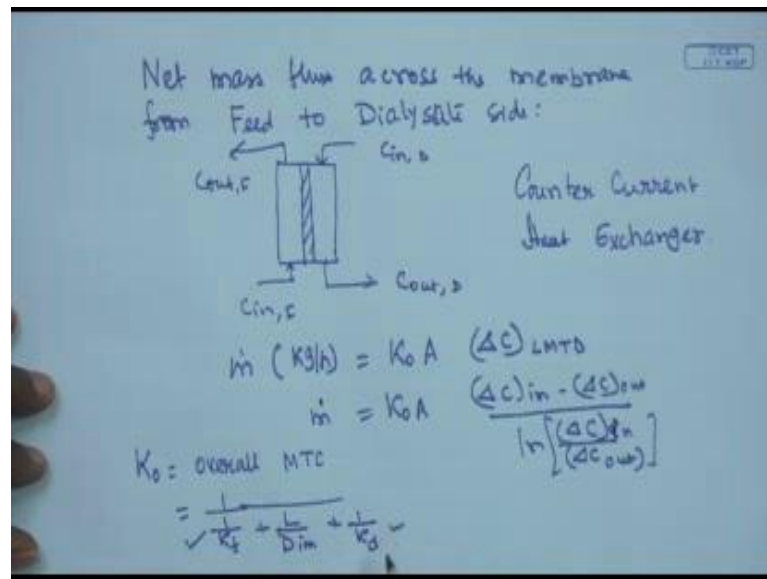 Net mass flux across the membrane
from Feed to Dialysate side:
Cin, D
Cout, F
Counter Current
Heat Exchanger
Cout, D
Cin, F
ṁ (Kg/h) = K₀ A (ΔC) LMTD
ṁ = K₀A (ΔC)in - (ΔC)out / ln[(ΔC)in / (ΔC out)]
K₀ = overall MTC
= 1 / (1/Kf + L/Dim + 1/Kd)